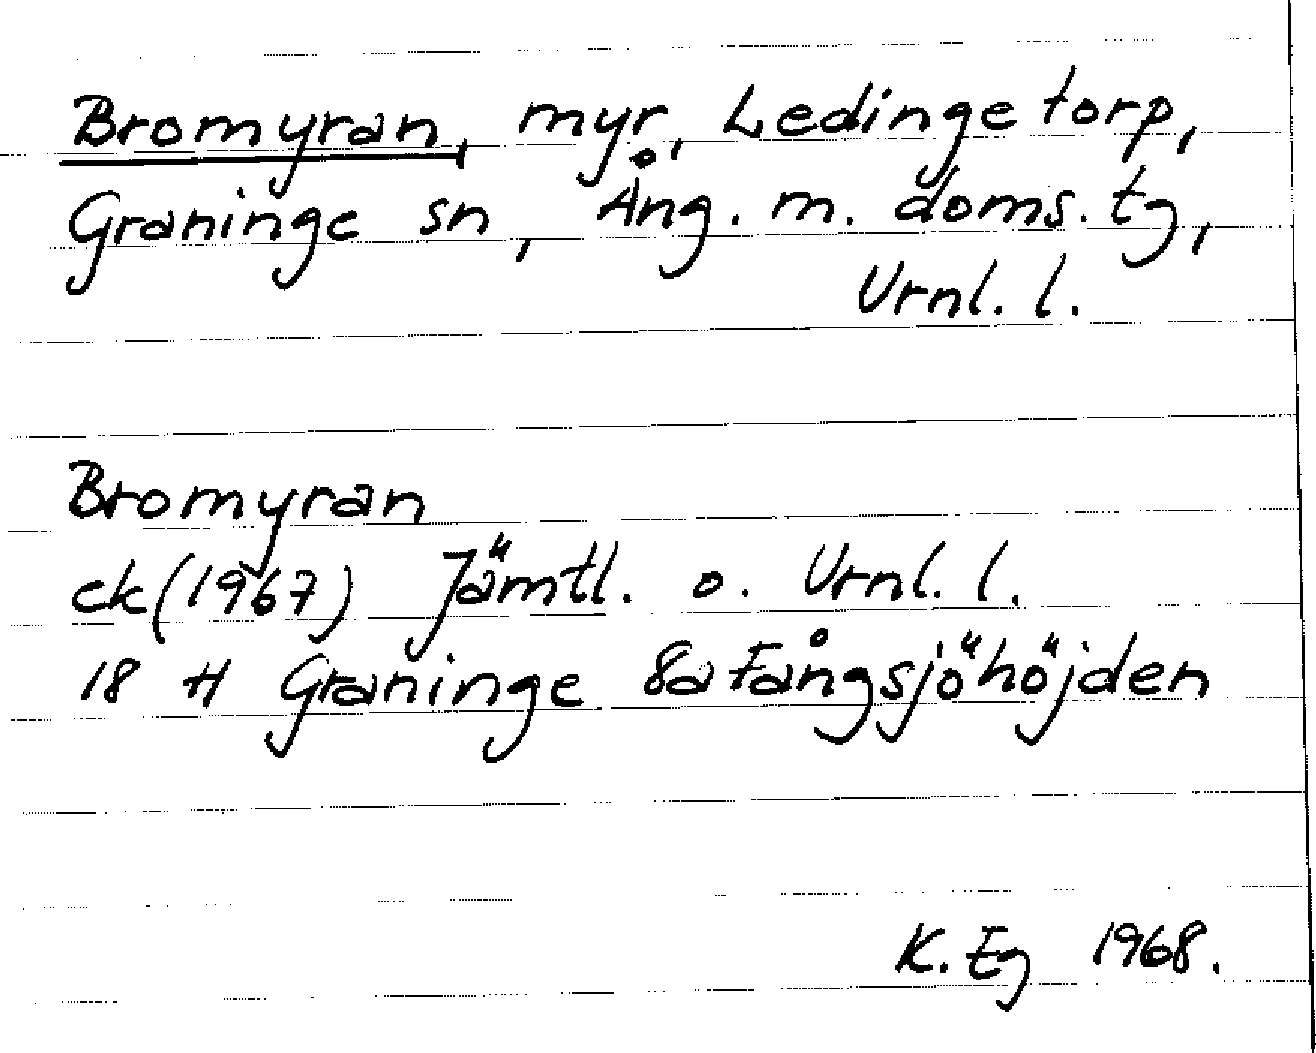 Bromyran, myr, Ledingetorp,
Graninge sn, Ång. m. doms. tg,
Vrnl. l.
Bromyran
ek (1967) Jämtl. o. Vrnl. l.
18 H Graninge 8a Fångsjöhöjden
K. Eg 1968.